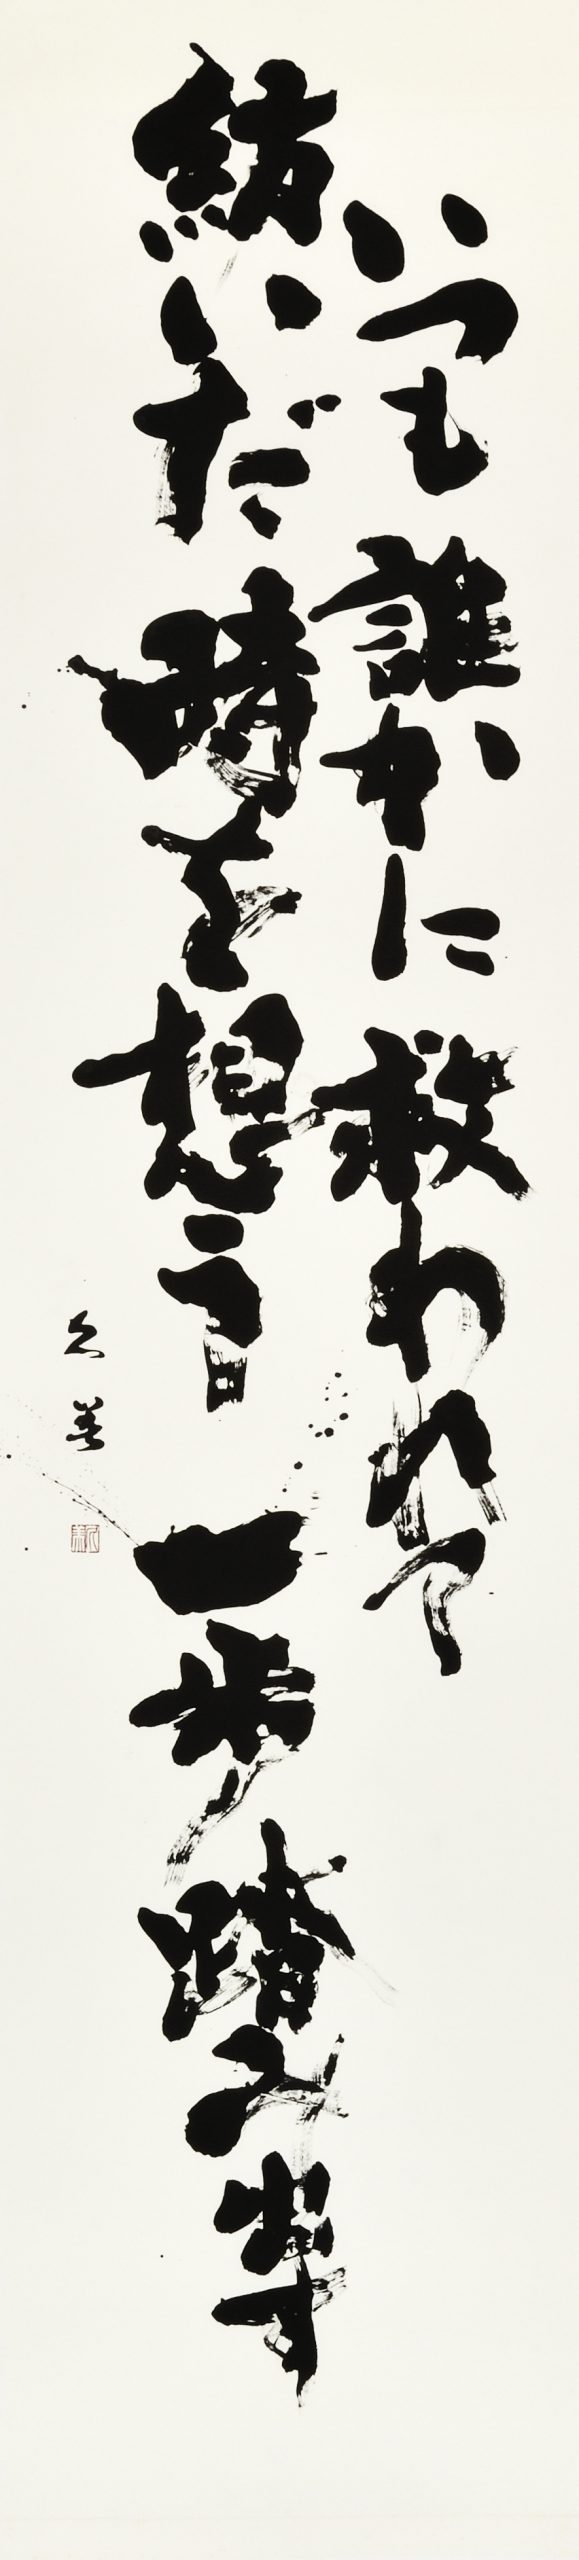 いつも誰かに救われて
紡いだ時を想う 一歩踏み出す